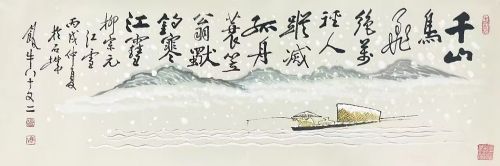 千山
鳥
飛
絕萬
徑人
蹤滅
孤舟
蓑笠
翁獨
釣寒
江雪
柳宗元
江雪
丙戌仲夏
於石城
牛八十又二